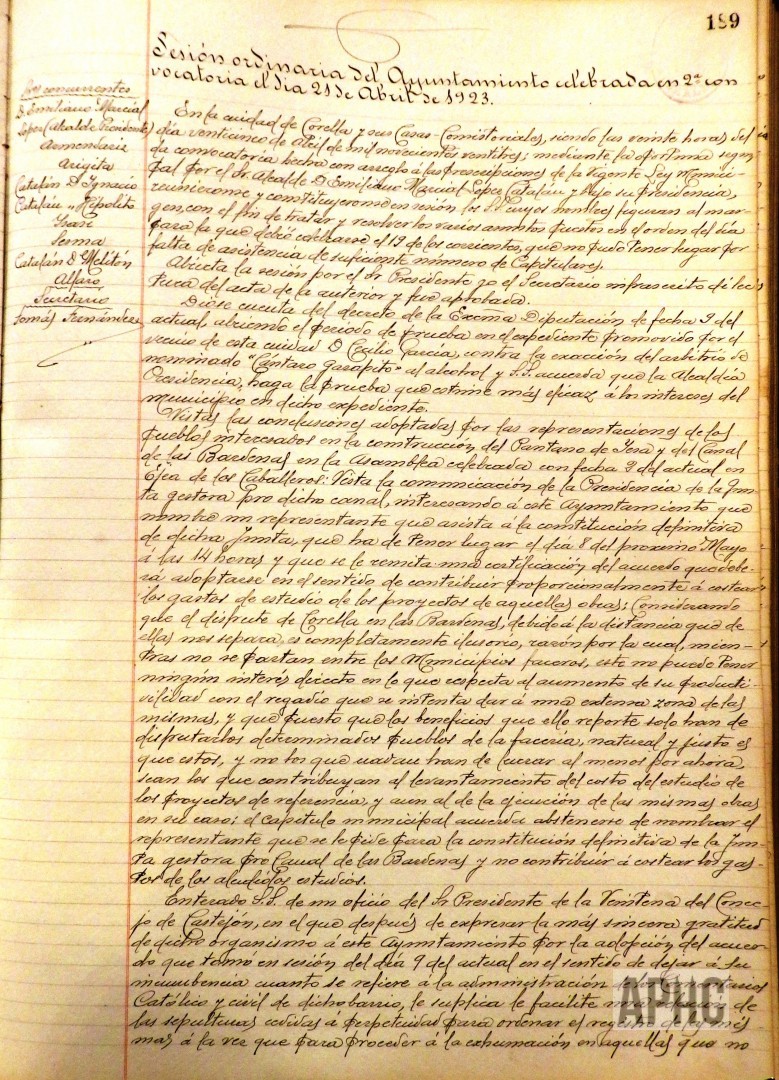 189
Sesión ordinaria del Ayuntamiento celebrada en 2ª con
vocatoria el día 21 de Abril de 1923.
Sres concurrentes
D. Emiliano Marcial
López (Alcalde Presidente)
Armendariz
Arigita
Catalán D. Ignacio
Catalán " Hipólito
Isasi
Serma
Catalán D. Melitón
Alfaro
Secretario
Tomás Fernández
En la ciudad de Corella y sus Casas-Comistoriales, siendo las veinte horas del
día ventiuno de Abril de mil novecientos ventitres; mediante la oportuna segun
da convocatoria hecha con arreglo á las prescripciones de la vigente Ley Munici-
pal por el Sr. Alcalde D. Emiliano Marcial López Catalán y bajo su presidencia,
reunieronse y constituyeronse en sesión los S.S. cuyos nombres figuran al mar-
gen, con el fin de tratar y resolver los varios asuntos puestos en el orden del día
para la que debió celebrarse el 19 de los corrientes, que no pudo tener lugar por
falta de asistencia de suficiente número de Capitulares.
Abierta la sesión por el Sr. Presidente yo el Secretario infrascrito dí lec-
tura del acta de la anterior y fue aprobada.
Dióse cuenta del decreto de la Excma Diputación de fecha 9 del
actual, abriendo el periodo de prueba en el expediente promovido por el
vecino de esta ciudad D. Cecilio García, contra la exacción del arbitrio de
nominado "Cántaro garapito" al alcohol y S.S. acuerda que la Alcaldía
Presidencia, haga la prueba que estime más eficaz á los intereses del
municipio en dicho expediente.
Vistas las conclusiones adoptadas por las representaciones de los
pueblos interesados en la construcción del Pantano de Yesa y del Canal
de las Bardenas, en la Asamblea celebrada con fecha 9 del actual en
Ejea de los Caballeros: Vista la comunicación de la Presidencia de la Jun-
ta gestora pro dicho canal, interesando á este Ayuntamiento que
nombre un representante que asista á la constitución definitiva
de dicha Junta, que ha de tener lugar el día 8 del proximo Mayo
á las 14 horas y que se le remita una certificación del acuerdo que debe-
rá adoptarse en el sentido de contribuir proporcionalmente á costear
los gastos de estudio de los proyectos de aquellas obras; Considerando
que el disfrute de Corella en las Bardenas, debido á la distancia que de
ellas nos separa, es completamente ilusorio, razón por la cual, mien-
tras no se partan entre los Municipios faceros, este no puede tener
ningún interés directo en lo que respecta al aumento de su producti-
vilidad con el regadío que se intenta dar á una extensa zona de las
mismas, y que puesto que los beneficios que ello reporte solo han de
disfrutarlos determinados pueblos de la facería, natural y justo es
que estos, y no los que nada han de lucrar al menos por ahora,
sean los que contribuyan al levantamiento del costo del estudio de
los proyectos de referencia, y aun al de la ejecución de las mismas obras
en su caso; el capítulo municipal acuerda abstenerse de nombrar el
representante que se le pide para la constitución definitiva de la Jun-
ta gestora pro Canal de las Bardenas y no contribuir á costear los gas-
tos de los aludidos estudios.
Enterado S.S. de un oficio del Sr. Presidente de la Veintena del Conce-
jo de Castejón, en el que después de expresar la más sincera gratitud
de dicho organismo á este Ayuntamiento por la adopción del acuer-
do que tomó en sesión del día 9 del actual en el sentido de dejar á su
incumbencia cuanto se refiere á la administración de
Católico y civil de dicho barrio, le suplica le facilite una relación de
las sepulturas cedidas á perpetuidad para ordenar el registro de las mis
mas á la vez que para proceder á la exhumación en aquellas que no
APHC